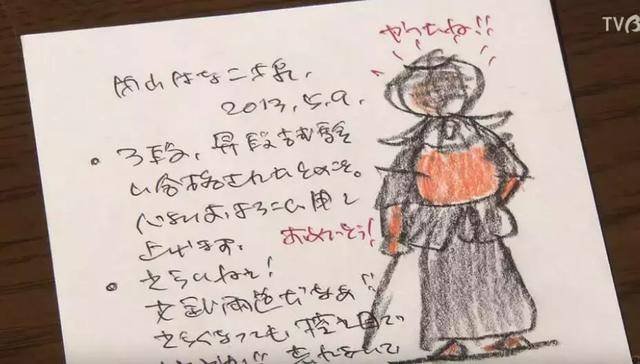 やったね!!
2013.5.9.
• 3段、昇段試験
に合格されたとのこと。
心よりおよろこび申し
上げます。 おめでとう!
• えらいねぇ!
文武両道だなぁ!!
えらくなっても 控え目で
忘れないで